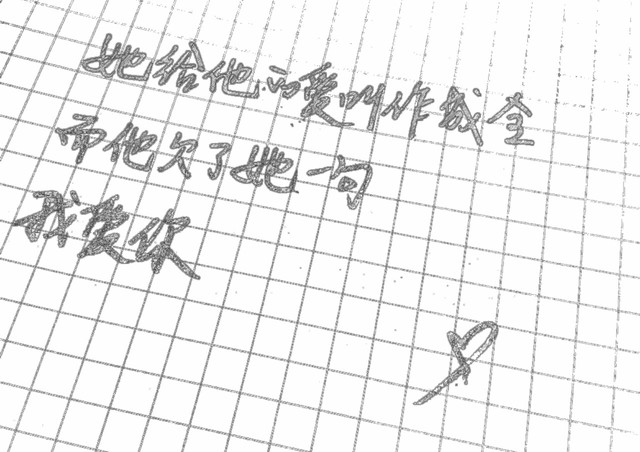 她给他的爱叫作成全
而他欠了她一句
我爱你